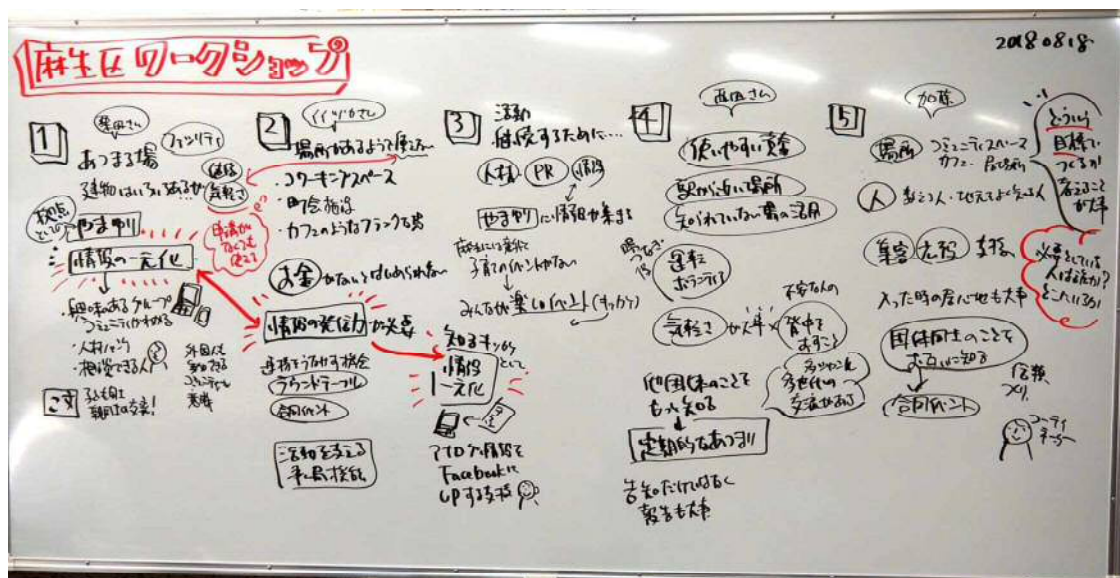 麻生区ワークショップ
20180818
1
柴田さん
ファシリティ
あつまる場
建物はいろいろあるが
気軽さ
拠点としての
やまゆり
情報の一元化
申請がなくても使える
興味のあるグループ
コミュニティがわかる
・人材バンク
・相談できる人
外国人も
参加できる
子ども同士
親同士の交流!
2
イイヅカさん
場所があるようで使えない
・コワーキングスペース
・町会施設
・カフェのようなフランクな場
お金がないとはじめられない
情報の発信力が必要
連携をうながす機会
ラウンドテーブル
合同イベント
活動を支える
事務局機能
3
活動
継続するために…
人材
PR
情報
やまゆりに情報が集まる
麻生には意外と
子育てイベントがない
みんなが楽しいイベント(きっかけ)
知るキッカケとして
情報
一元化
アナログ情報を
Facebookに
UPする支援
4
西田さん
使いやすい資金
駅から近い場所
知られていない場の活用
運転
ボランティア
気軽さが大事
不安な人の
背中を
おすこと
他団体のことを
もっと知る
多世代の
交流がある
定期的なあつまり
告知だけではなく
報告も大事
5
加藤
場所
コミュニティスペース
カフェ 居場所
人
集客
広報
支援
入った時の居心地も大事
団体同士のことを
お互いに知る
合同イベント
信頼
づくり
コーディ
ネーター
どういう
目標で
つくるか
考えること
が大事
必要としている
人は誰か?
どこにいるか?